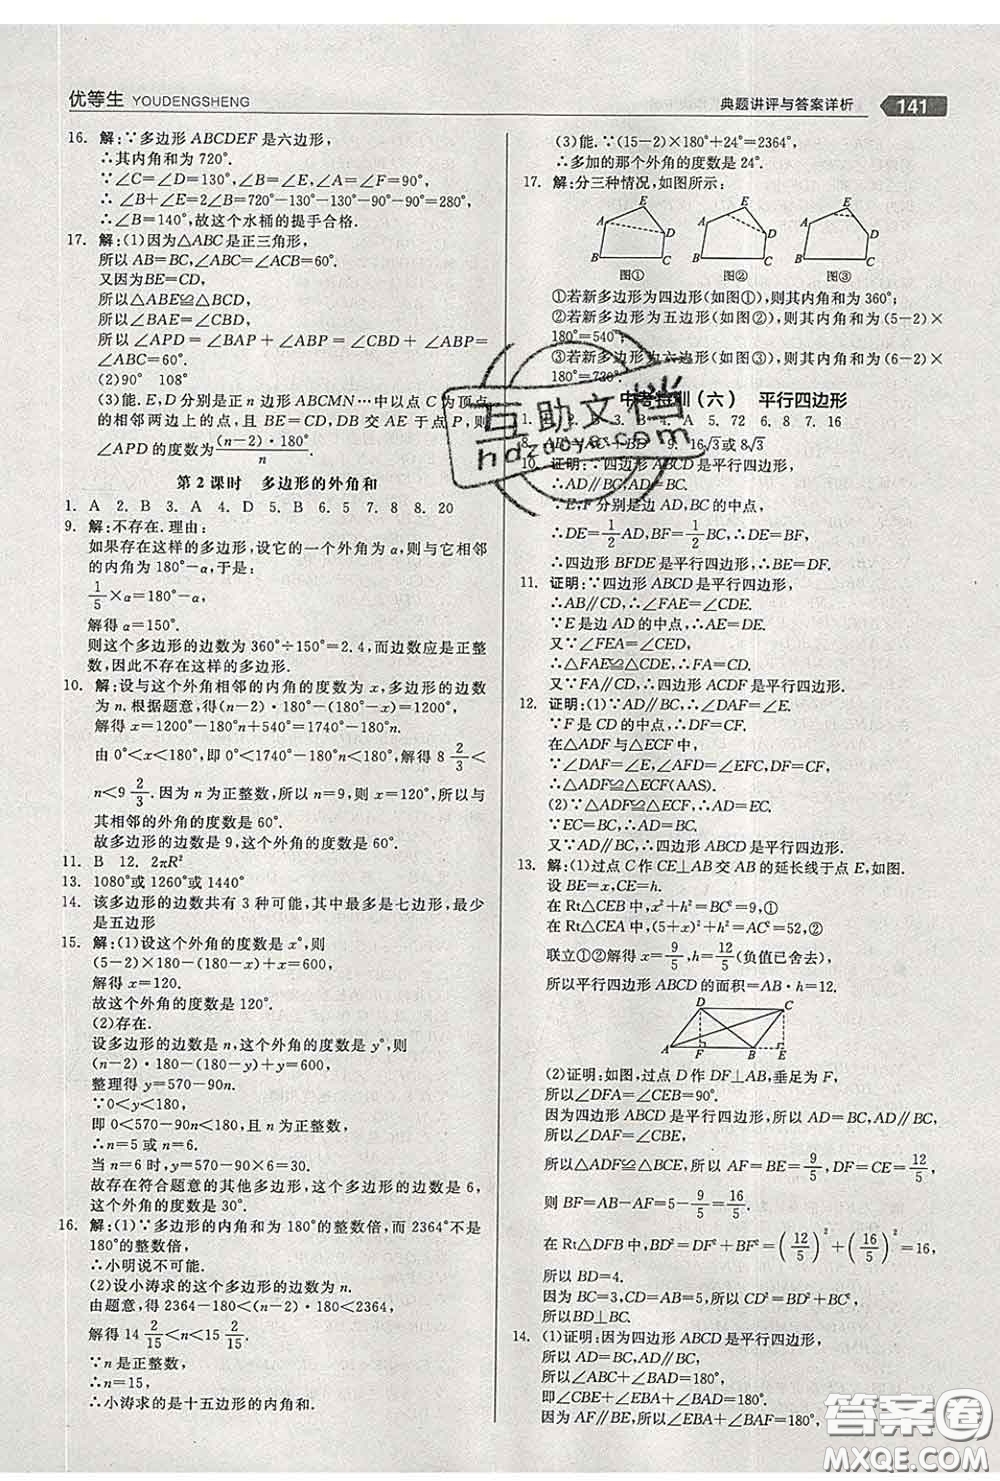 优等生 YOUDENGSHENG
典题讲评与答案详析 141
16. 解:∵多边形ABCDEF是六边形,
∴其内角和为720°.
∵∠C=∠D=130°,∠B=∠E,∠A=∠F=90°,
∴∠B+∠E=2∠B=720°-130°-130°-90°-90°=280°,
∴∠B=140°,故这个水桶的提手合格.
17. 解:(1)因为△ABC是正三角形,
所以AB=BC,∠ABC=∠ACB=60°.
又因为BE=CD,
所以△ABE≌△BCD,
所以∠BAE=∠CBD,
所以∠APD=∠BAP+∠ABP=∠CBD+∠ABP=
∠ABC=60°.
(2)90° 108°
(3)能.E,D分别是正n边形ABCMN…中以点C为顶点
的相邻两边上的点,且BE=CD,DB交AE于点P,则
∠APD的度数为(n-2)·180°/n.
第2课时 多边形的外角和
1. A 2. B 3. A 4. D 5. B 6. 5 7. 8 8. 20
9. 解:不存在.理由:
如果存在这样的多边形,设它的一个外角为α,则与它相邻
的内角为180°-α,于是:
1/5×α=180°-α,
解得α=150°.
则这个多边形的边数为360°÷150°=2.4,而边数应是正整
数,因此不存在这样的多边形.
10. 解:设与这个外角相邻的内角的度数为x,多边形的边数
为n.根据题意,得(n-2)·180°-(180°-x)=1200°,
解得x=1200°-180°n+540°=1740°-180°n.
由0°<x<180°,即0°<1740°-180°n<180°,解得8 2/3<
n<9 2/3.因为n为正整数,所以n=9,则x=120°,所以与
其相邻的外角的度数为60°.
故多边形的边数是9,这个外角的度数为60°.
11. B 12. 2πR²
13. 1080°或1260°或1440°
14. 该多边形的边数共有3种可能,其中最多是七边形,最少
是五边形
15. 解:(1)设这个外角的度数是x°,则
(5-2)×180-(180-x)+x=600,
解得x=120.
故这个外角的度数是120°.
(2)存在.
设多边形的边数是n,这个外角的度数是y°,则
(n-2)·180-(180-y)+y=600,
整理得y=570-90n.
∵0<y<180,
即0<570-90n<180,且n为正整数,
∴n=5或n=6.
当n=6时,y=570-90×6=30.
故存在符合题意的其他多边形,这个多边形的边数是6,
这个外角的度数是30°.
16. 解:(1)∵多边形的内角和为180°的整数倍,而2364°不是
180°的整数倍,
∴小明说不可能.
(2)设小涛求的这个多边形的边数为n.
由题意,得2364-180<(n-2)·180<2364,
解得14 2/15<n<15 2/15.
∵n是正整数,
∴n=15,
∴小涛求的是十五边形的内角和.
(3)能.∵(15-2)×180°+24°=2364°,
∴多加的那个外角的度数是24°.
17. 解:分三种情况,如图所示:
A E D B C
A E D B C
A E D B C
图① 图② 图③
①若新多边形为四边形(如图①),则其内角和为360°;
②若新多边形为五边形(如图②),则其内角和为(5-2)×
180°=540°;
③若新多边形为六边形(如图③),则其内角和为(6-2)×
180°=720°.
中考特训(六) 平行四边形
B 4. A 5. 72 6. 8 7. 16
9. 16√3或8√3
10. 证明:∵四边形ABCD是平行四边形,
∴AD∥BC,AD=BC.
∵E,F分别是AD,BC的中点,
∴DE=1/2AD,BF=1/2BC,∴DE=BF,
∴四边形BFDE是平行四边形,∴BE=DF.
11. 证明:∵四边形ABCD是平行四边形,
∴AB∥CD,∴∠FAE=∠CDE.
∵E是AD的中点,∴AE=DE.
又∵∠FEA=∠CED,
∴△FAE≌△CDE,∴CD=FA.
又∵CD∥AF,∴四边形ACDF是平行四边形.
12. 证明:(1)∵AD∥BC,∴∠DAF=∠E.
∵F是CD的中点,∴DF=CF.
在△ADF与△ECF中,
∵∠DAF=∠E,∠AFD=∠EFC,DF=CF,
∴△ADF≌△ECF(AAS).
(2)∵△ADF≌△ECF,∴AD=EC.
∵EC=BC,∴AD=BC.
又∵AD∥BC,∴四边形ABCD是平行四边形.
13. 解:(1)过点C作CE⊥AB交AB的延长线于点E,如图.
设BE=x,CE=h.
在Rt△CEB中,x²+h²=BC²=9,①
在Rt△CEA中,(5+x)²+h²=AC²=52,②
联立①②解得x=9/5,h=12/5(负值已舍去),
所以平行四边形ABCD的面积=AB·h=12.
D C A F B E
(2)证明:如图,过点D作DF⊥AB,垂足为F,
所以∠DFA=∠CEB=90°.
因为四边形ABCD是平行四边形,所以AD=BC,AD∥BC,
所以∠DAF=∠CBE,
所以△ADF≌△BCE,所以AF=BE=9/5,DF=CE=12/5,
则BF=AB-AF=5-9/5=16/5.
在Rt△DFB中,BD²=DF²+BF²=(12/5)²+(16/5)²=16,
所以BD=4.
因为BC=3,CD=5,所以CD²=DB²+BC²,
所以BD⊥BC.
14. (1)证明:因为四边形ABCD是平行四边形,
所以∠ABC+∠BAD=180°,
即∠CBE+∠EBA+∠BAD=180°.
因为AF∥BE,所以∠EBA+∠BAD+∠FAD=180°,
互助文档
hdzuoye.com
答案圈
MXQE.COM